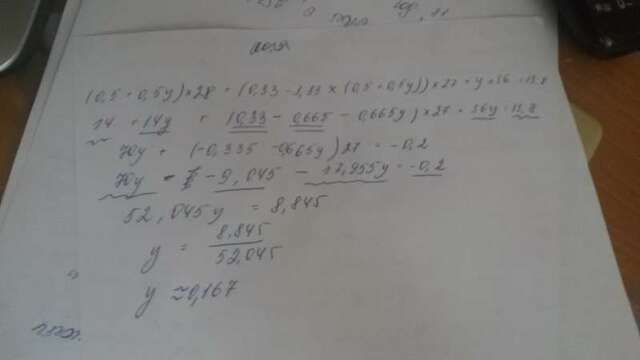 (0,5 + 0,5y) × 28 + (0,33 - 1,33 × (0,5 + 0,5y)) × 27 + y × 56 = 13,8
14 + 14y + (0,33 - 0,665 - 0,665y) × 27 + 56y = 13,8
70y + (-0,335 - 0,665y) 27 = -0,2
70y - 9,045 - 17,955y = -0,2
52,045y = 8,845
y = 8,845 / 52,045
y ≈ 0,167